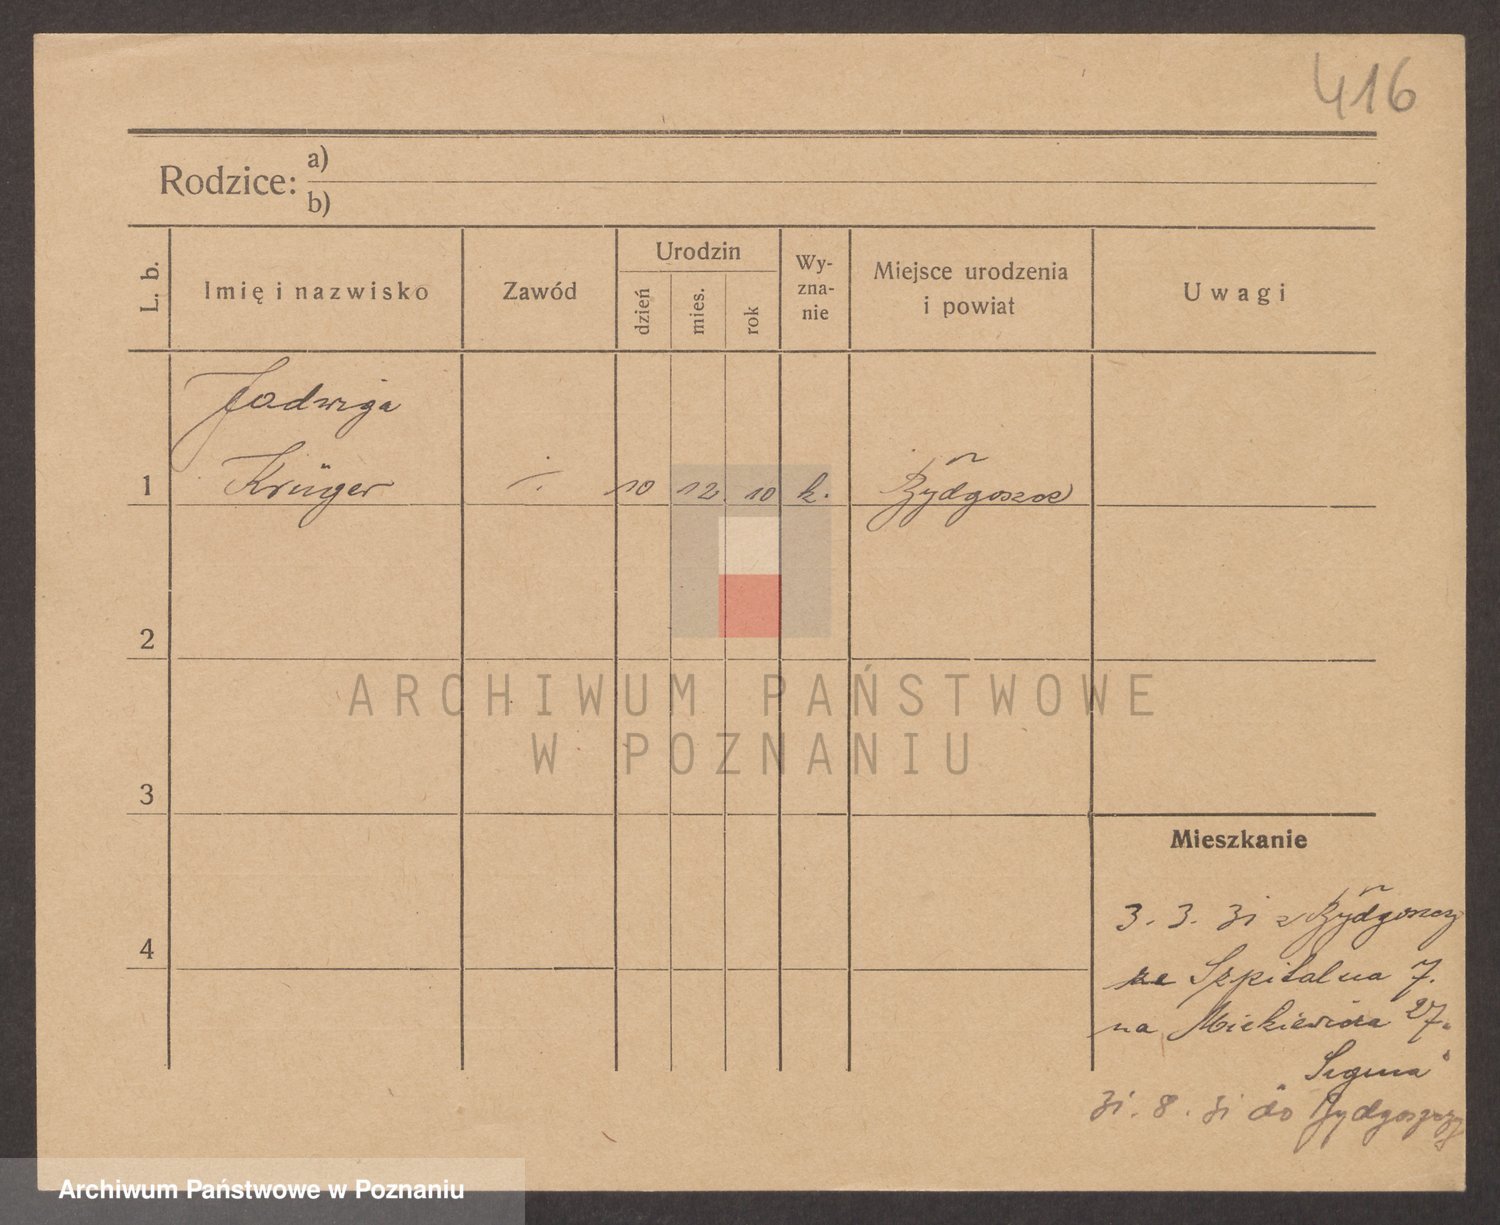 416
Rodzice: a)
b)
L. b.
Imię i nazwisko
Zawód
Urodzin
dzień
mies.
rok
Wy-
zna-
nie
Miejsce urodzenia
i powiat
Uwagi
Jadwiga
1 Krüger ·/. 10 12. 10 k. Bydgoszcz
2
ARCHIWUM PAŃSTWOWE
W POZNANIU
3
Mieszkanie
3. 3. 31 z Bydgoszczy
4
Szpitalna 7.
na Mickiewicza 27.
31. 8. 31 do Bydgoszczy
Archiwum Państwowe w Poznaniu